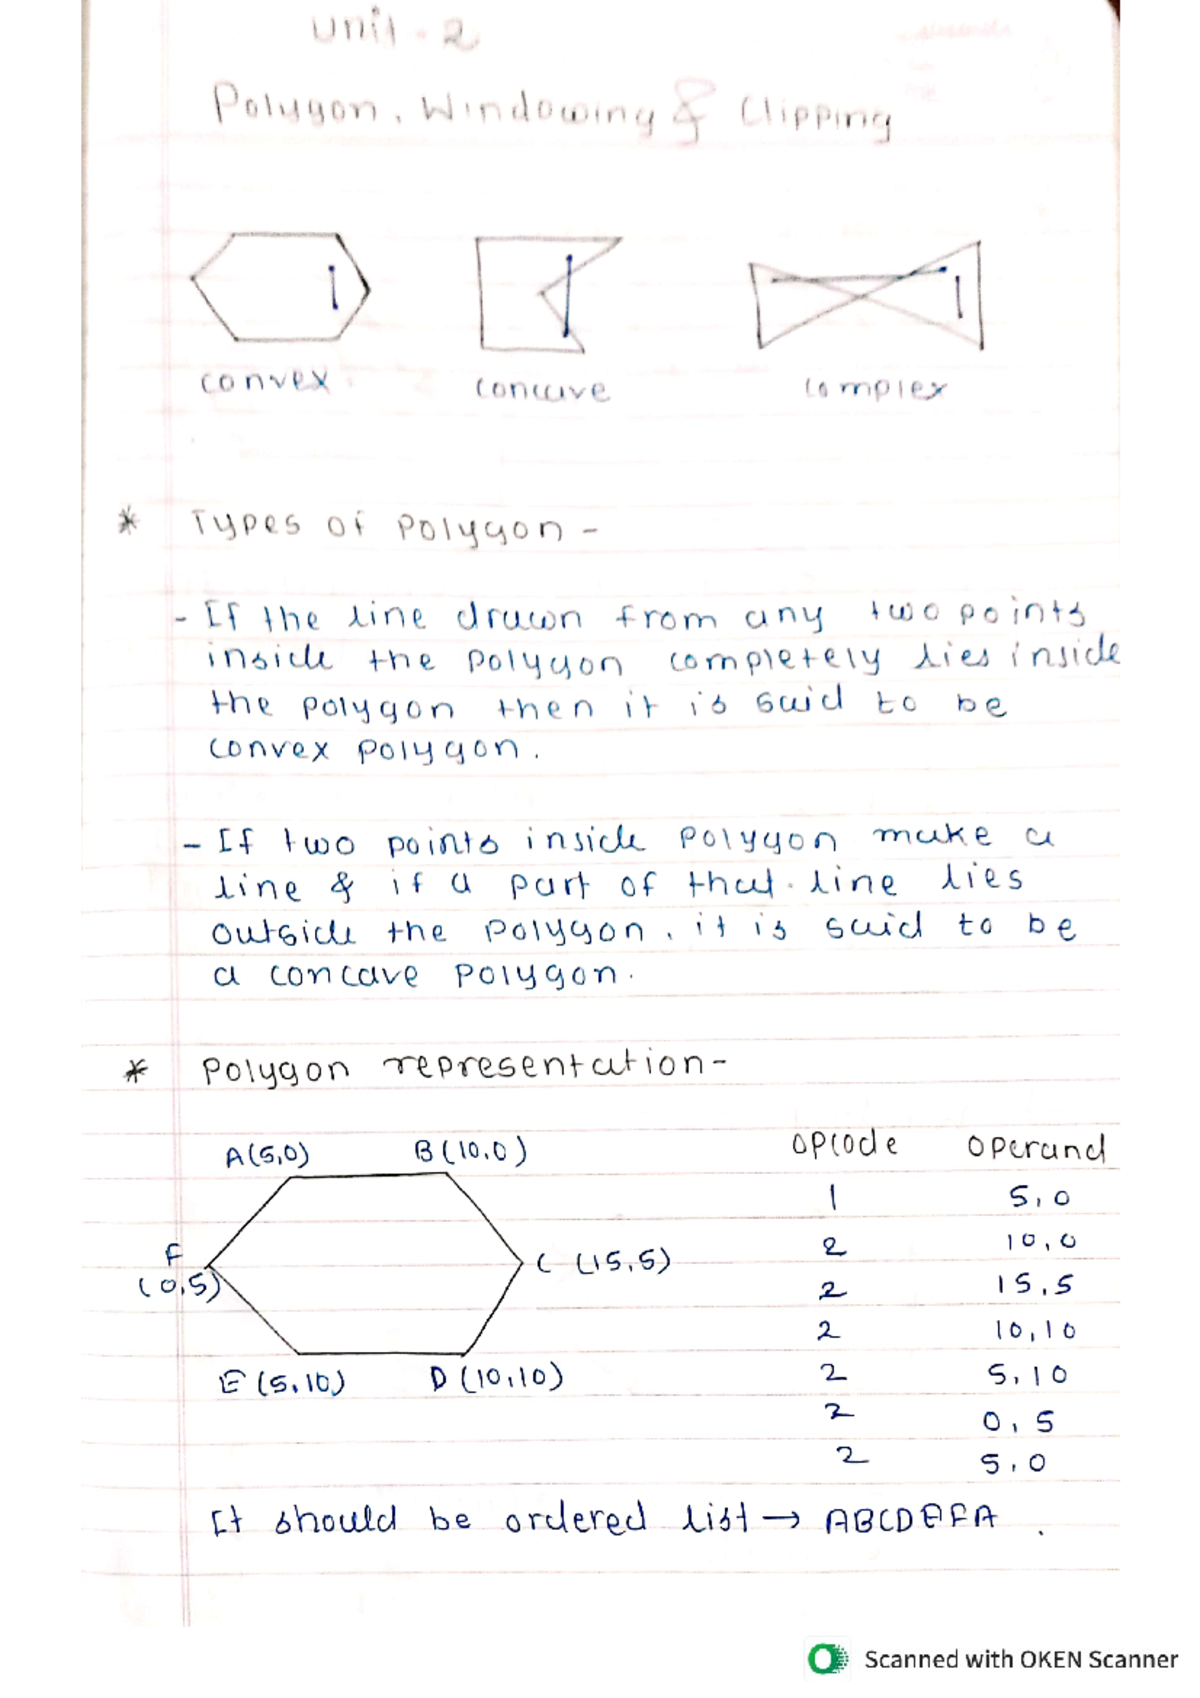 Unit - 2
Polygon, Windowing & Clipping
convex
concave
complex
* Types of Polygon -
- If the line drawn from any two points
inside the polygon completely lies inside
the polygon then it is said to be
convex polygon.
- If two points inside polygon make a
line & if a part of that line lies
outside the polygon, it is said to be
a concave polygon.
* Polygon representation -
A(5,0) B(10,0) opcode operand
1 5,0
F 2 10,0
(0,5) C (15,5) 2 15,5
2 10,10
E (5,10) D (10,10) 2 5,10
2 0,5
2 5,0
It should be ordered list → ABCDEFA.
Scanned with OKEN Scanner